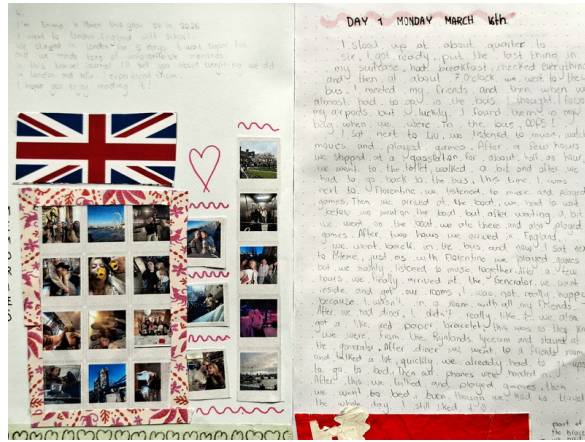 Hi
I went to London England with school
We stayed in London for 5 days. It was super fun
and we made tons of unforgettable memories
In this travel journal I'll tell you about everything we did
in London and how I experienced them.
I hope you enjoy reading it!
DAY 1 MONDAY MARCH 16th
I stood up at about quarter to
six, I got ready, put the last thing in
my suitcase, had breakfast, checked everything
and then at about 7 o'clock we went to the
bus. I meeted my friends, and then when we
almost had to go in the bus I thought I forgot
my airpods, but luckily I found them in my
bag when we were in the bus, OOPS!
I sat next to Lu, we listened to music, watched
movies, and played games. After a few hours
we stopped at a gasstation for about half an hour
we went to the toilet, walked a bit and after we
had to go back to the bus, this time I was
next to Florentine, we listened to music and played
games. Then we arrived at the boat, we had to wait
before we went on the boat but after waiting a bit
we went on the boat, we ate there and also played
games. After two hours we arrived in England,
we went back in the bus and now I sat next
to , just as with Florentine we played games
but we mainly listened to music together. After a few
hours we finally arrived at the Generator, we went
inside and got our rooms, I was not really happy
because I wasn't in a room with my friends.
After we had diner, I didn't really like it, we also
got a like red paper bracelet this was so they
we were from the Rijnlands lyceum and stayed at
the generator. After diner we went to a friends room
and talked a lot, quickly we already had to go
to go to bed. Then our phones were
After this we talked and played games, then
we went to bed, even though we had to travel
the whole day I still liked it
part of
the brace